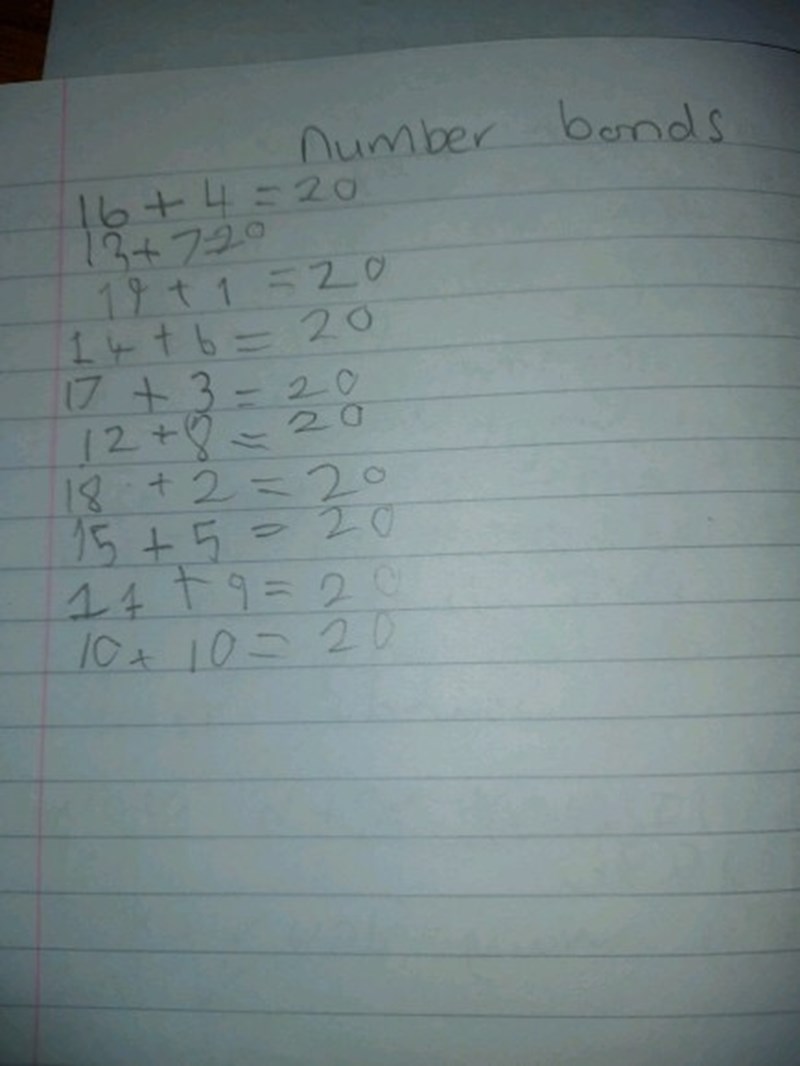 number bonds
16 + 4 = 20
13 + 7 20
19 + 1 = 20
14 + 6 = 20
17 + 3 = 20
12 + 8 = 20
18 + 2 = 20
15 + 5 = 20
11 + 9 = 20
10 + 10 = 20